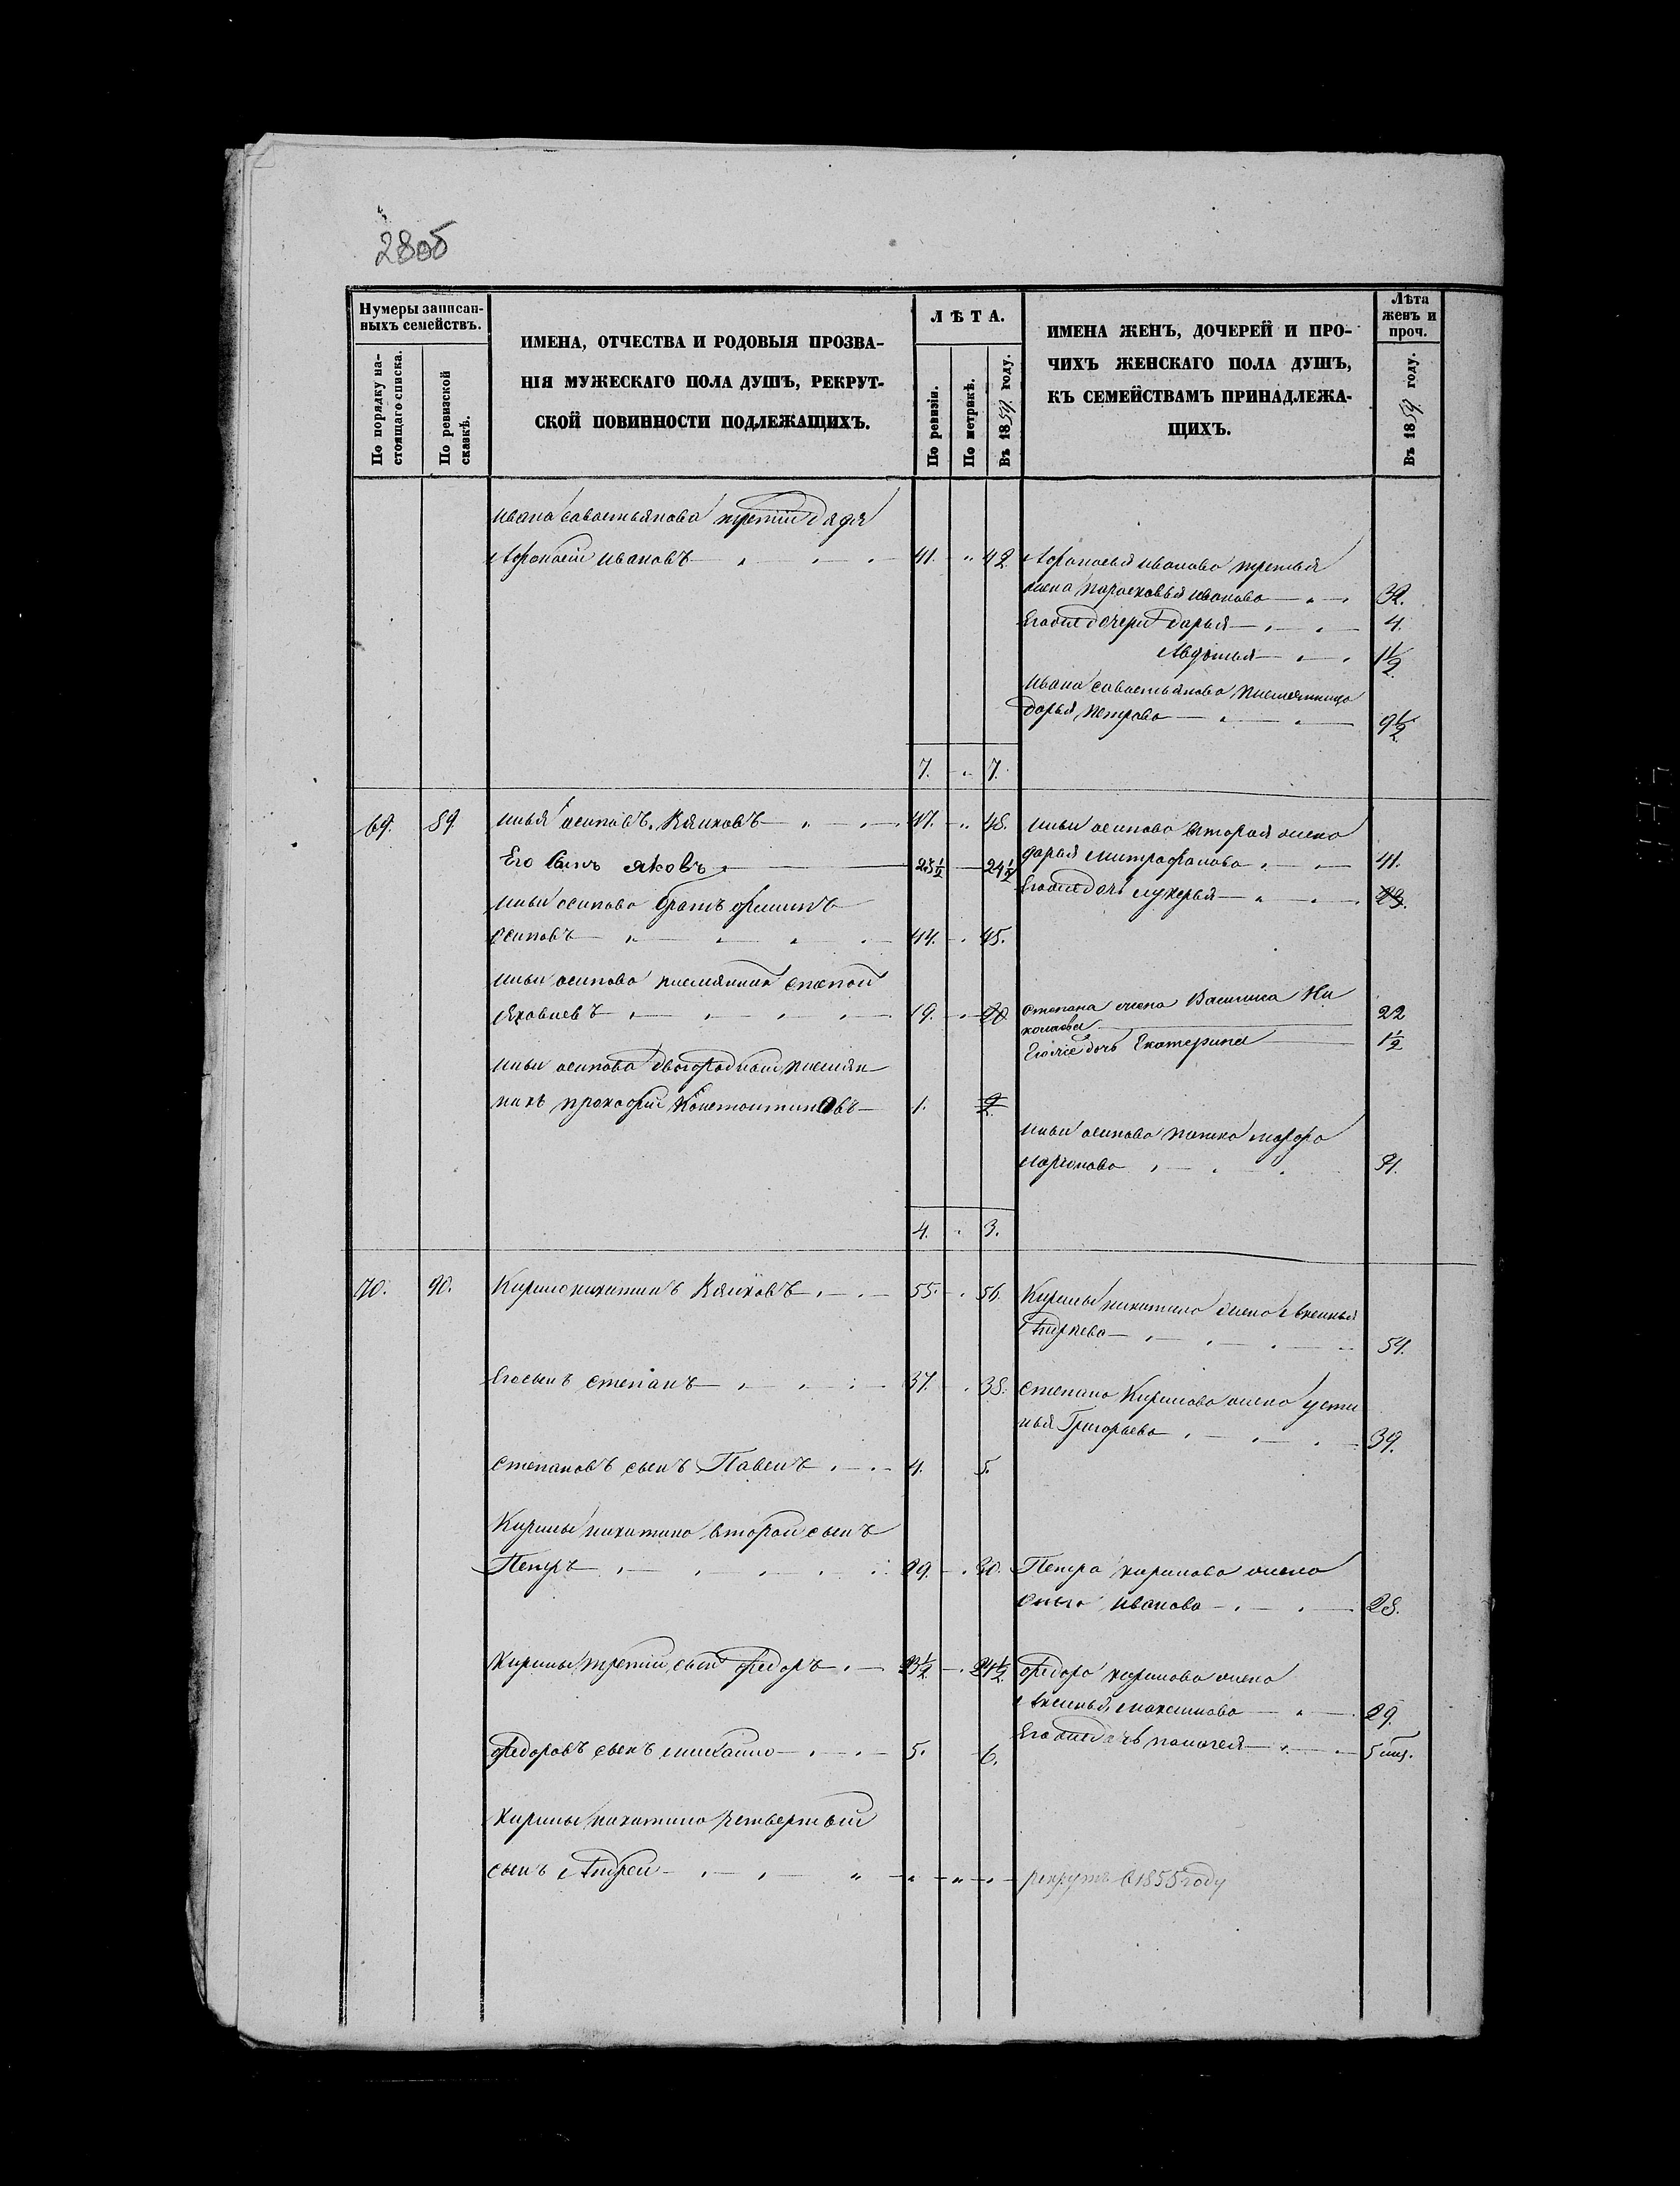 280б
Нумеры записан-
ныхъ семействъ.
По порядку на-
стоящаго списка.
По ревизской
сказкѣ.
ИМЕНА, ОТЧЕСТВА И РОДОВЫЯ ПРОЗВА-
НІЯ МУЖЕСКАГО ПОЛА ДУШЪ, РЕКРУТ-
СКОЙ ПОВИННОСТИ ПОДЛЕЖАЩИХЪ.
ЛѢТА.
По ревизіи.
По метрикѣ.
Въ 1859 году.
ИМЕНА ЖЕНЪ, ДОЧЕРЕЙ И ПРО-
ЧИХЪ ЖЕНСКАГО ПОЛА ДУШЪ,
КЪ СЕМЕЙСТВАМЪ ПРИНАДЛЕЖА-
ЩИХЪ.
Лѣта
женъ и
проч.
Въ 1859 году.
Ивана Савостьянова третій дядя
Афонасій Ивановъ 41. 42
Афонасья Иванова третья
жена Парасковья Иванова 32.
Его же дочери Дарья 4.
Авдотья 1 1/2
Ивана Савостьянова племянница
Дарья Петрова 9 1/2
7. 7.
69. 89 Илья Осиповъ 47. 48.
Ильи Осипова вторая жена
Его Сынъ Яковъ 23 1/2 24 1/2
Дарья Митрофанова 41.
Ильи Осипова братъ Филипъ
Его же дочь Лукерья
Осиповъ 44. 45.
Ильи Осипова племянник Степан
Яковлевъ 19. 20
Степана жена Василиса Ни
колаева 22
Его же дочь Екатерина 1 1/2
Ильи Осипова двоюродный племян
никъ Прокофій Констонтиновъ 1. 2
Ильи Осипова
54.
4. 3.
70. 90. Кирило Никитинъ 55. 56.
Кирилы Никитина жена Аксинья
Андреева 54.
Его сынъ Степанъ 37. 38.
Степана Кирилова жена Усти
нья Григорьева 39.
Степановъ сынъ Павелъ 4. 5.
Кирилы Никитина второй сынъ
Петръ 29. 30.
Петра Кирилова жена
Иванова 28.
Кирилы третий сынъ Федоръ 23 1/2 24 1/2
Федора Кирилова жена
Аксинья Максимова 29.
Его же дочь Пелагея 5 мц.
Федоровъ сынъ Михайло 5. 6.
Кирилы Никитина четвертый
сынъ Андрей
рекрутъ в 1855 году